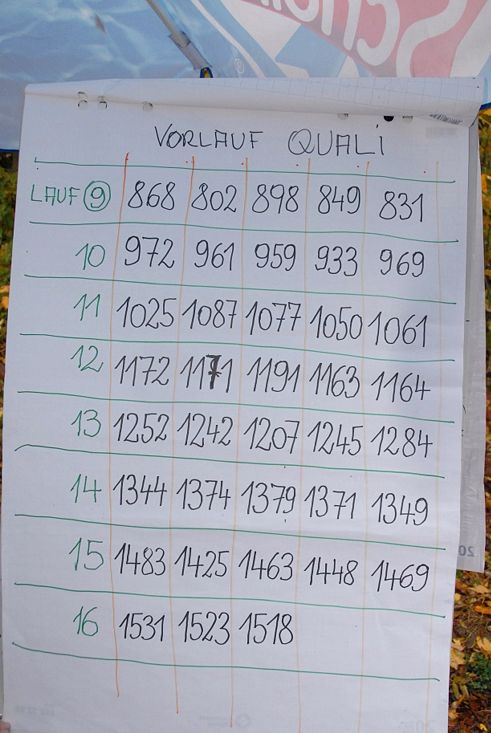 VORLAUF QUALI
LAUF 9 868 802 898 849 831
10 972 961 959 933 969
11 1025 1087 1077 1050 1061
12 1172 1171 1191 1163 1164
13 1252 1242 1207 1245 1284
14 1344 1374 1379 1371 1349
15 1483 1425 1463 1448 1469
16 1531 1523 1518